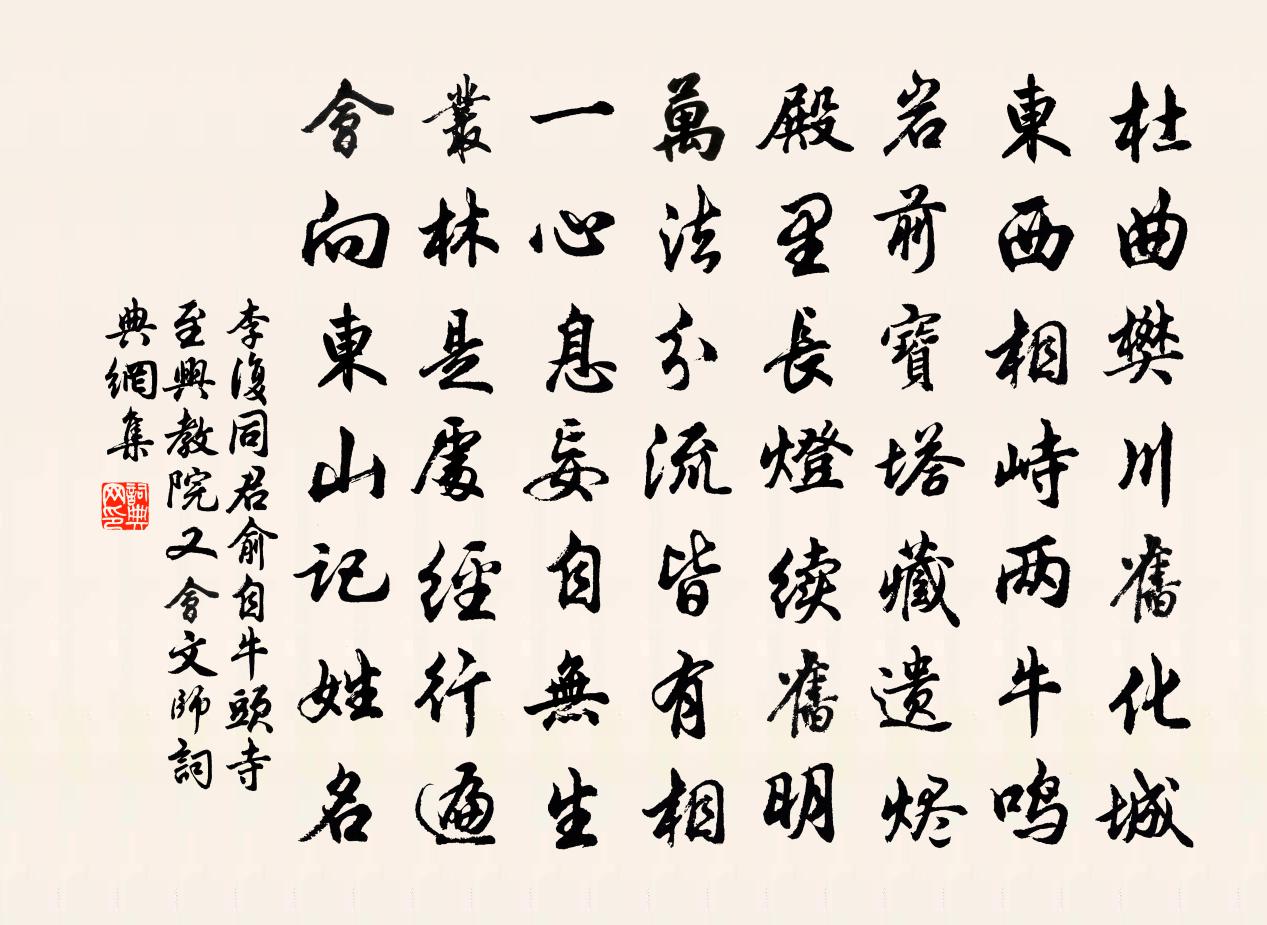 杜曲樊川舊化城
東西相峙两牛鸣
岩前寶塔藏遺烬
殿里長燈续舊明
萬法分流皆有相
一心息妄自無生
叢林是處經行遍
會向東山記姓名
李復同君俞自牛頭寺
至興教院又會文師詞
典網集
詞典网印